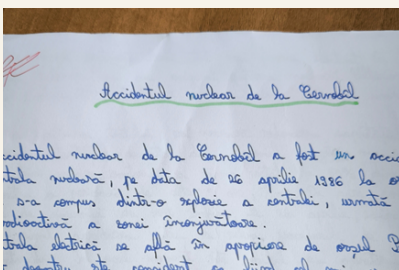 Accidentul nuclear de la Cernobîl
ccidentul nuclear de la Cernobîl a fost un accid
trala nucleară, pe data de 26 aprilie 1986 la o
s-a compus dintr-o explozie a centralei, urmată
radioactivă a zonei înconjurătoare.
trala electrică se află în apropiere de orașul P
este considerat ca fiind cel mai